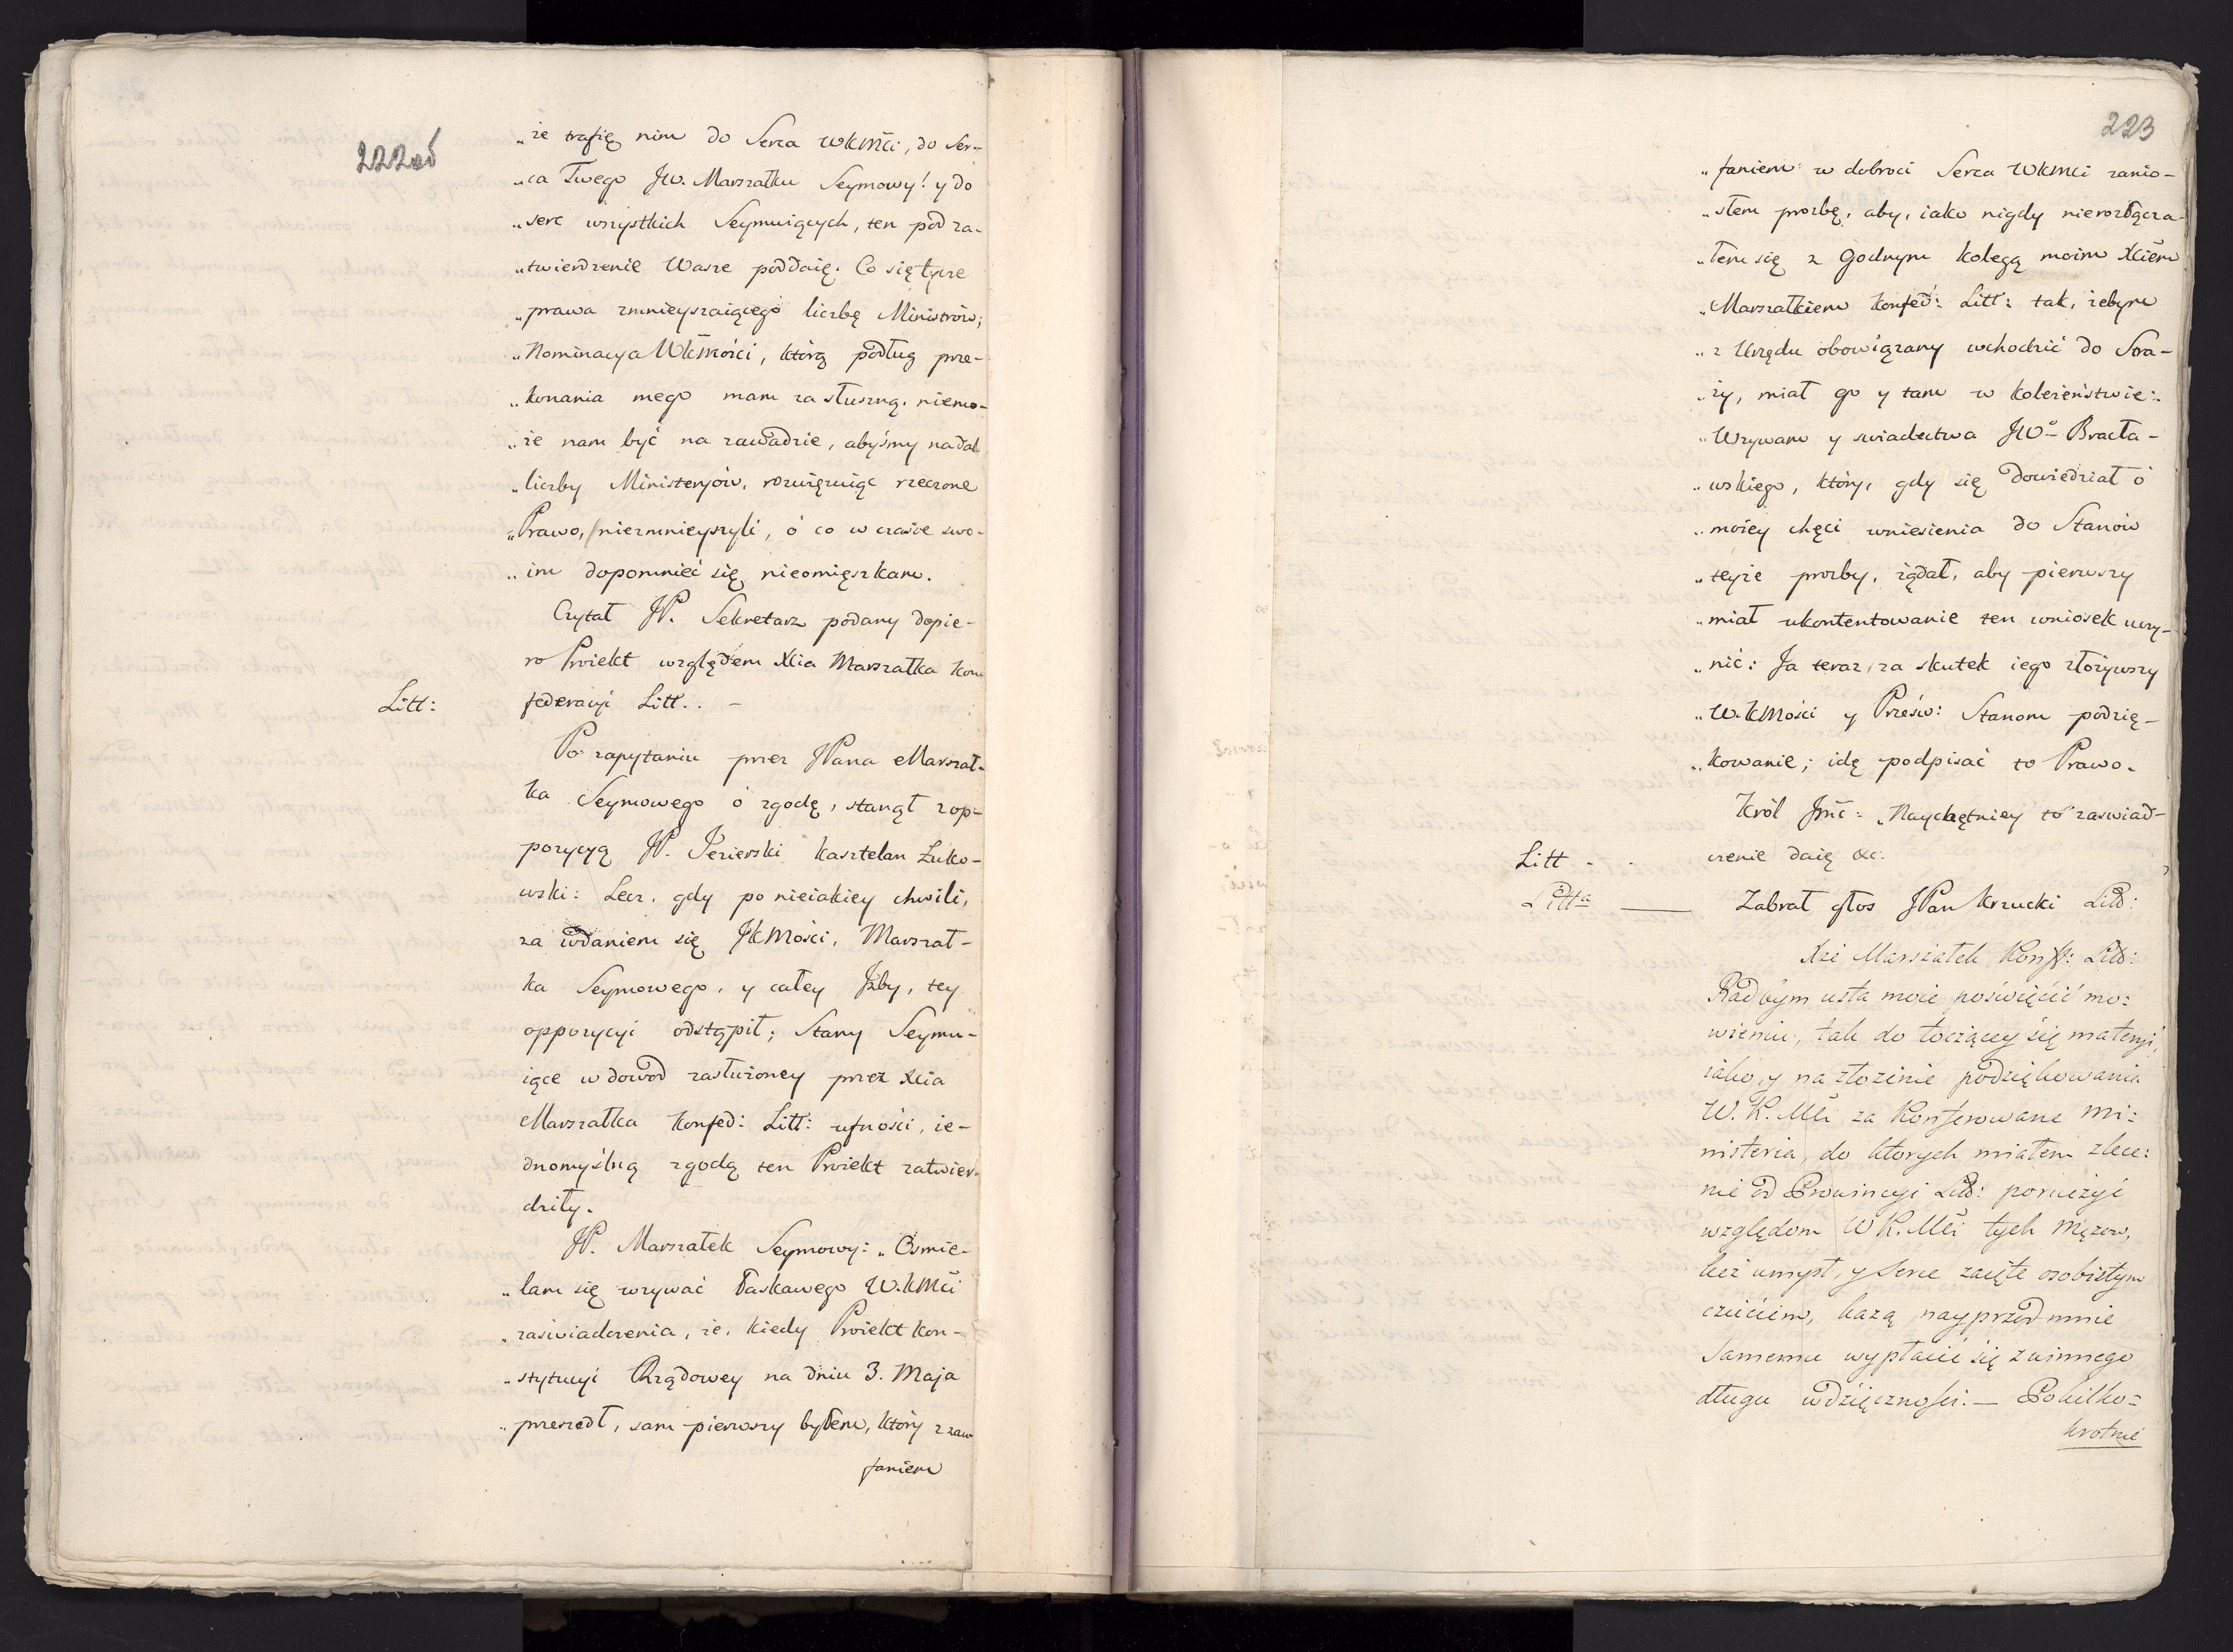 222ab
„że trafię nim do Serca WKMći, do Ser-
„ca Twego JW. Marszałku Seymowy! y do
„serc wszystkich Seymuiących, ten pod za-
„twierdzenie Wasze poddaię. Co się tycze
„prawa zmnieyszaiącego liczbę Ministrów;
„Nominacya WKMości, którą podług prze-
„konania mego mam za słuszną, niemo-
„że nam być na zawadzie, abyśmy nadal
„liczby Ministeryów, rozwięzuiąc rzeczone
„Prawo, niezmnieyszyli, ó co w czasie swo-
„im dopomnieć się nieomięszkam.
Czytał JP. Sekretarz podany dopie-
ro Proiekt względem Xcia Marszałka Kon
Litt:
federacyi Litt..-
Po zapytaniu przez JPana Marszał-
ka Seymowego ó zgodę, stanął z op-
pozycyą JP. Jezierski Kasztelan Łuko-
wski: Lecz, gdy po nieiakiey chwili,
za wdaniem się JKMości, Marszał-
ka Seymowego, y całey Jzby, tey
oppozycyi odstąpił; Stany Seymu-
iące w dowód zasłużoney przez Xcia
Marszałka Konfed: Litt: ufności, ie-
dnomyślną zgodą ten Proiekt zatwier-
dziły.
JP. Marszałek Seymowy: „Ośmie-
„lam się wzywać Łaskawego W.KMći
„zaświadczenia, że, kiedy Proiekt Kon-
„stytucyi Rządowey na dniu 3. Maja
„przeszedł, sam pierwszy byłem, który z zau
faniem
223
„faniem w dobroci Serca WKMći zanio-
„słem prozbę, aby, iako nigdy nierozłącza-
„łem się z Godnym Kolegą moim Xciem
„Marszałkiem Konfed: Litt: tak, żebym
„z Urzędu obowiązany wchodzić do Stra-
„ży, miał go y tam w Koleżeństwie:
„Wzywam y swiadectwa JWo Bracła-
„wskiego, który, gdy się dowiedział ó
„moiey chęci wniesienia do Stanów
„teyże prozby, żądał, aby pierwszy
„miał ukontentowanie ten wniosek uczy-
„nić: Ja teraz, za skutek iego złożywszy
„W.KMości y Prześw: Stanom podzię-
„kowanie; idę podpisać to Prawo.
Król Jmć: „Naychętniey to zaswiad-
Litt - -
czenie daię &c:
Litta
Zabrał głos JPan Krzucki Litt:
Xże Marszałek Konf: Litt:
Radbym usta moie poświęcić mo:
wieniu, tak do toczącey się materyi,
iako, y na złozenie podziękowania
W. K. Mći za Konferowane Mi:
nisteria, do ktorych miałem zlece:
nie od Prowincyi Litt: poruczyć
względom W K. Mći tych Mężow,
lecz umysł, y Serce zaięte osobistym
czuciem, każą nayprzod mnie
Samemu wypłacić się z winnego
długu wdzięcznosci. — Pokilko=
krotnie